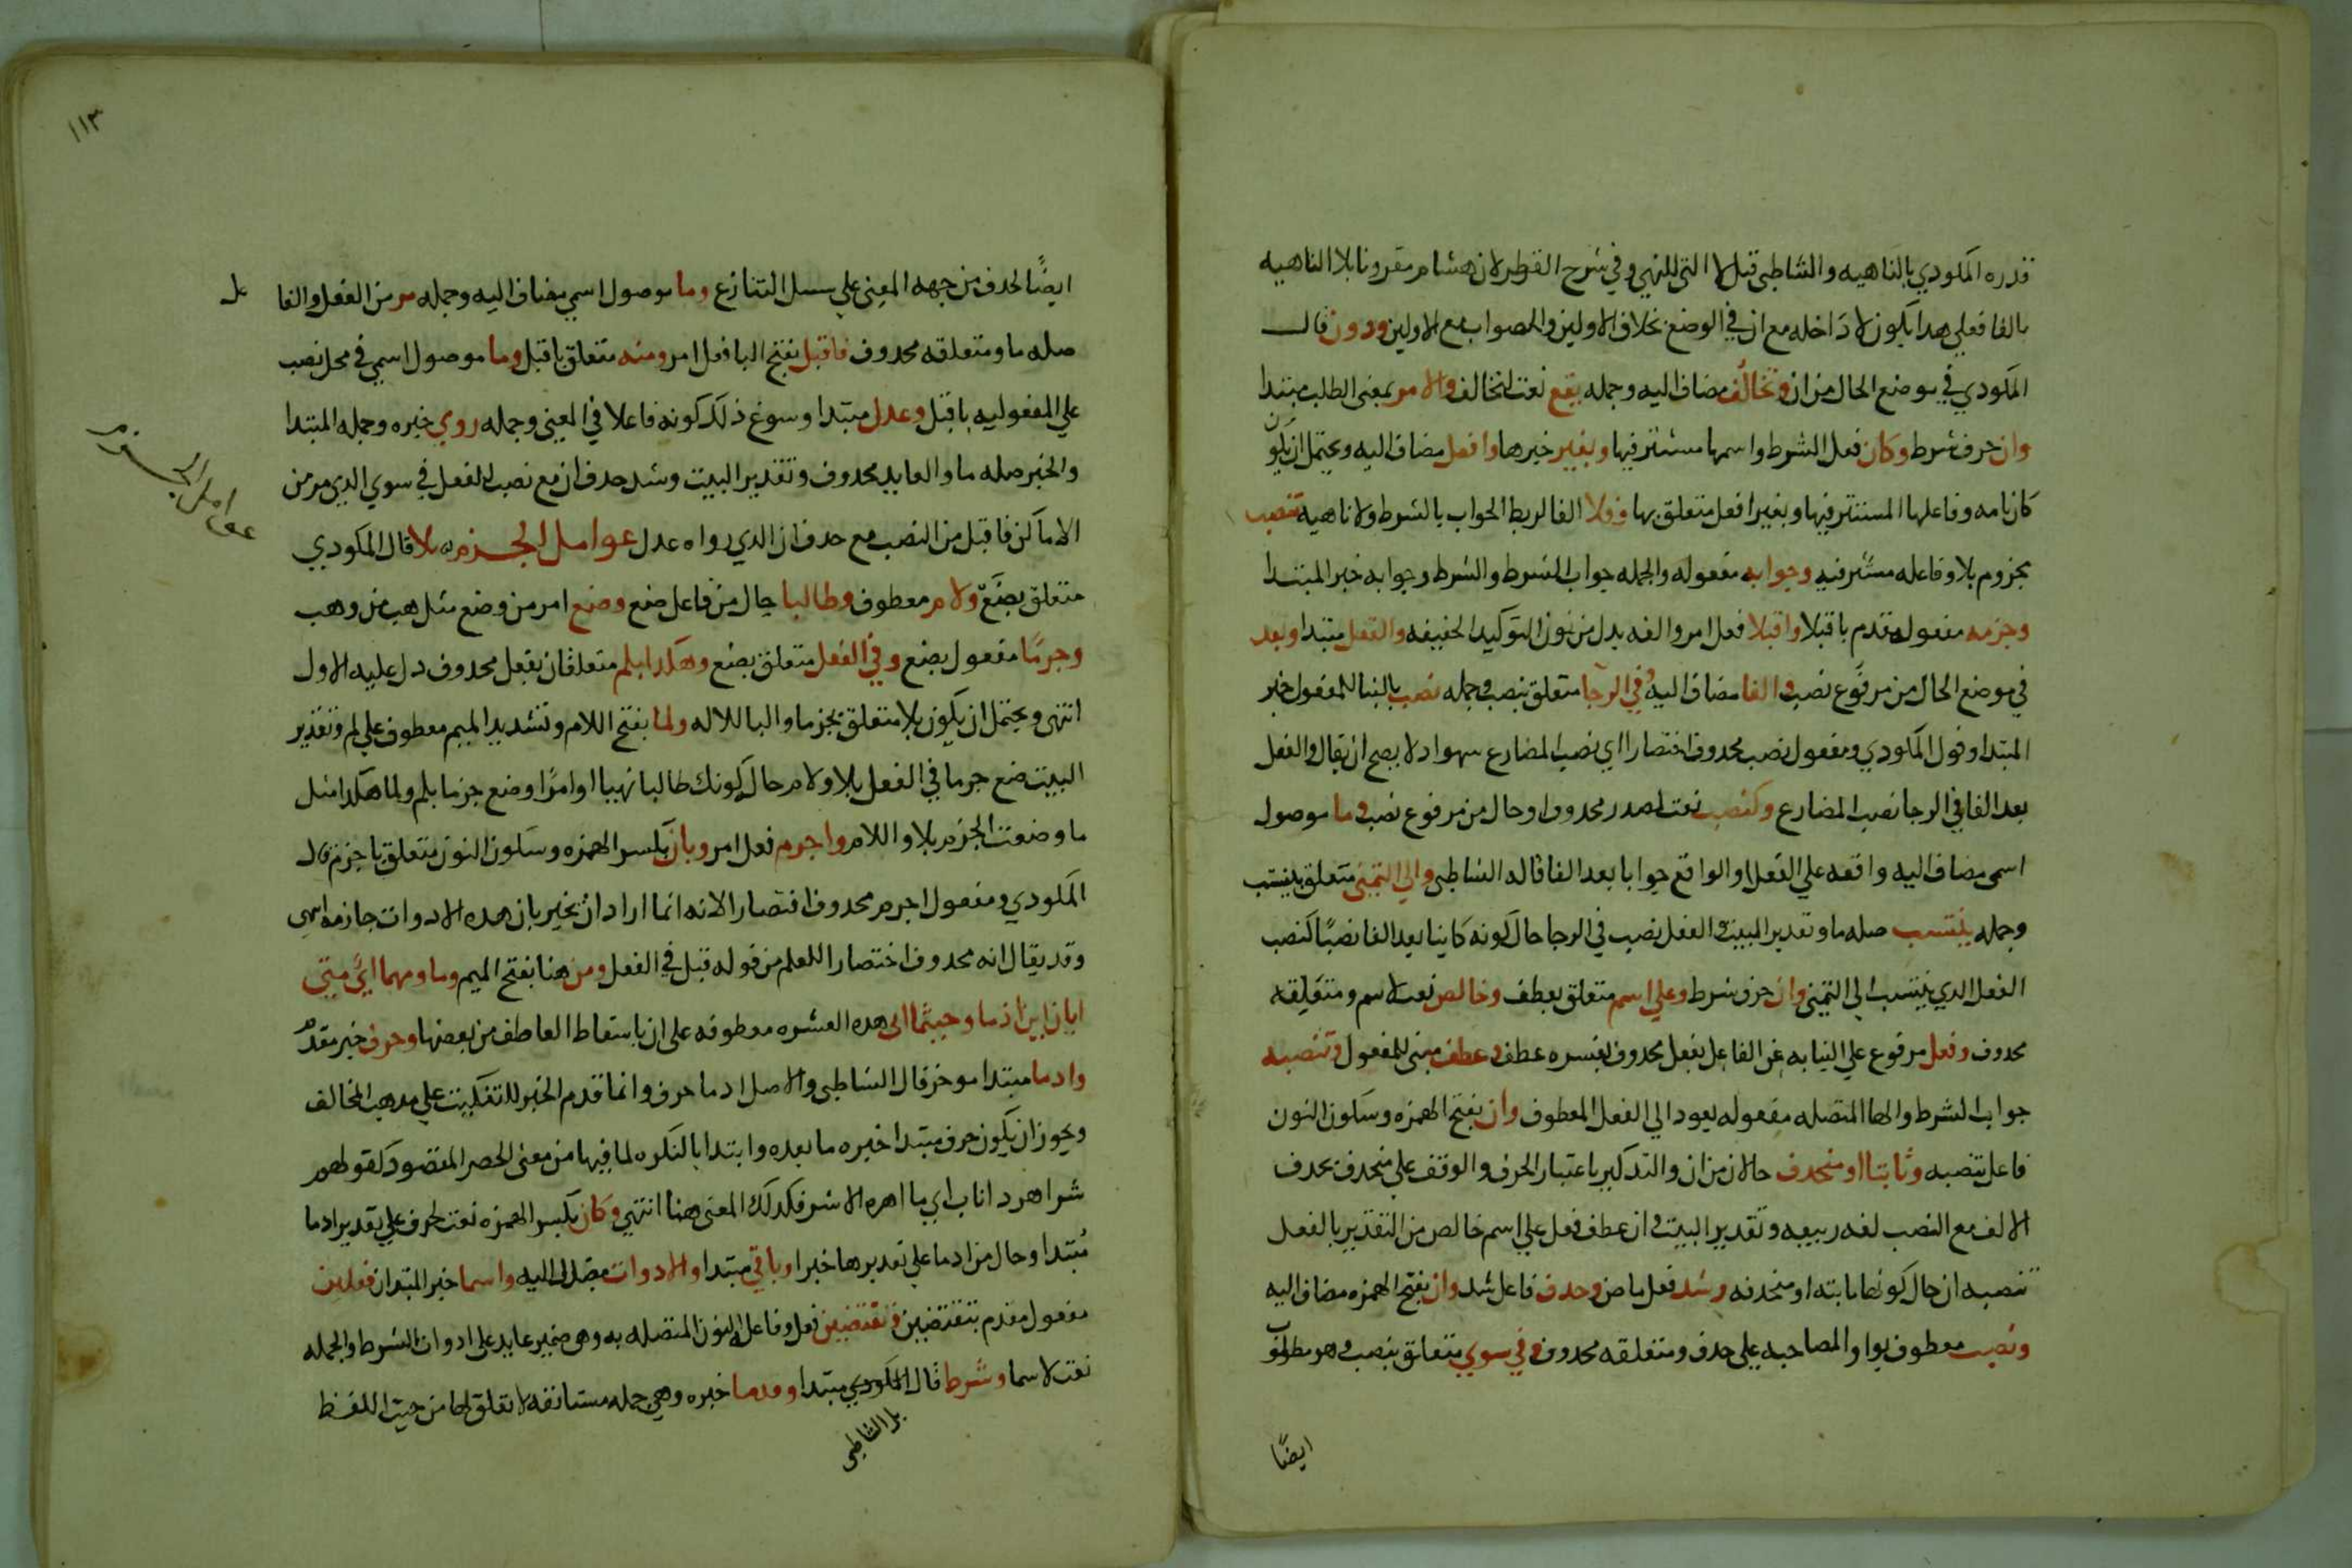 قدره المكودي بالناهيه والشاطبي قبل لا التي للنهي وفي شرح القطر لابن هشام مقرونا بلا الناهيه
بالفا فعلي هدا يكون لا داخله مع ان في الوضع بخلاف الاولين والصواب مع الاولين ودون قال
المكودي في موضع الحال من ان وتخالف مضاف اليه وجمله يقع نعت لتخالف والامر بمعنى الطلب مبتدا
وان حرف شرط وكان فعل الشرط واسمها مستتر فيها وبغير خبرها وافعل مضاف اليه ويحتمل ان يكون
كان تامه وفاعلها المستتر فيها وبغير افعل متعلق بها وفلا الفا لربط الجواب بالشرط ولا ناهيه تنصب
مجزوم بلا وفاعله مستتر فيه وجوابه مفعوله والجمله جواب الشرط والشرط وجوابه خبر المبتدا
وجزمه مفعول مقدم باقبلا واقبلا فعل امر والفه بدل من نون التوكيد الخفيفه والفعل مبتدا وبعد
في موضع الحال من مرفوع نصب والفا مضاف اليه وفي الرجا متعلق بنصب وجمله نصب بالبنا للمفعول خبر
المبتدا وقول المكودي ومفعول نصب محدوف اختصارا اي نصب المضارع سهو اد لا يصح ان يقال والفعل
بعد الفا في الرجا نصب المضارع وكنصب نعت لمصدر محدوف او حال من مرفوع نصب وما موصول
اسمي مضاف اليه واقعه علي الفعل الواقع جوابا بعد الفا قاله الشاطبي والي التمني متعلق بينتسب
وجمله ينتسب صله ما وتقدير البيت والفعل نصب في الرجا حال كونه كاينا بعد الفا نصبا كنصب
الفعل الدي ينتسب الي التمني وان حرف شرط وعلي اسم متعلق بعطف وخالص نعت لاسم ومتعلقه
محدوف وفعل مرفوع علي النيابه عن الفاعل بفعل محدوف يفسره عطف وعطف مبني للمفعول وتنصبه
جواب الشرط والها المتصله مفعوله يعود الي الفعل المعطوف وان بفتح الهمزه وسكون النون
فاعل تنصبه وثابتا او منحدف حالان من ان والتدكير باعتبار الحرف والوقف علي منحدف بحدف
الالف مع النصب لغه ربيعه وتقدير البيت وان عطف فعل علي اسم خالص من التقدير بالفعل
تنصبه ان حال كونها ثابته او منحدفه وشد فعل ماض وحدف فاعل شد وان بفتح الهمزه مضاف اليه
ونصب معطوف بواو المصاحبه علي حدف ومتعلقه محدوف وفي سوي متعلق بنصب وهو مطلوب
ايضًا
١١٣
ايضًا لحدف من جهه المعني علي سبيل التنازع وما موصول اسمي مضاف اليه وجمله مر من الفعل والفا
صله ما ومتعلقه محدوف فاقبل بفتح البا فعل امر ومنه متعلق باقبل وما موصول اسمي في محل نصب
علي المفعوليه باقبل وعدل مبتدا وسوغ ذلك كونه فاعلا في المعني وجمله روي خبره وجمله المبتدا
والخبر صله ما والعايد محدوف وتقدير البيت وشد حدف ان مع نصب الفعل في سوي الدي مر من
الاماكن فاقبل من النصب مع حدف ان الدي رواه عدل عوامل الجزم بلا قال المكودي
عوامل الجزم
متعلق بضع ولام معطوف وطالبا حال من فاعل ضع وضع امر من وضع مثل هب من وهب
وجزمًا مفعول بضع وفي الفعل متعلق بضع وهكدا بلم متعلقان بفعل محدوف دل عليه الاول
انتهي ويحتمل ان يكون بلا متعلق بجزما والبا للاله ولما بفتح اللام وتشديد الميم معطوف علي لم وتقدير
البيت ضع جزما في الفعل بلا ولام حال كونك طالبا نهيا او امرًا وضع جزما بلم ولما هكدا مثل
ما وضعت الجزم بلا واللام واجزم فعل امر وبان بكسر الهمزه وسكون النون متعلق باجزم قال
المكودي ومفعول اجزم محدوف اقتصارا لانه انما اراد ان يخبر بان هده الادوات جازمه انتهي
وقد يقال انه محدوف اختصارا للعلم من قوله قبل في الفعل ومن هنا بفتح الميم وما ومهما اي متي
ايان اين اذ ما وحيثما اني هده العشره معطوفه علي ان باسقاط العاطف من بعضها وحرف خبر مقدم
وادما مبتدا موخر قال الشاطبي والاصل اد ما حرف وانما قدم الخبر للتفكيت علي مدهب المخالف
ويجوز ان يكون حرف مبتدا خبره ما بعده وابتدا بالنكره لما فيها من معني الحصر المقصود كقولهم
شر اهر دا ناب اي ما اهره الا شر فكدلك المعني هنا انتهي وكان بكسر الهمزه نعت لحرف علي تقدير ادما
مبتدا وحال من ادما علي تقديرها خبرا وباقي مبتدا والادوات مضاف اليه واسما خبر المبتدا فعلين
مفعول مقدم بتقتضين وتقتضين فعل وفاعل والنون المتصله به وهي ضمير عايد علي ادوات الشرط والجمله
نعت لاسما وشرط قال المكودي مبتدا وقدما خبره وهي جمله مستانفه لا تعلق لها من حيث اللفظ
بل الشاطبي